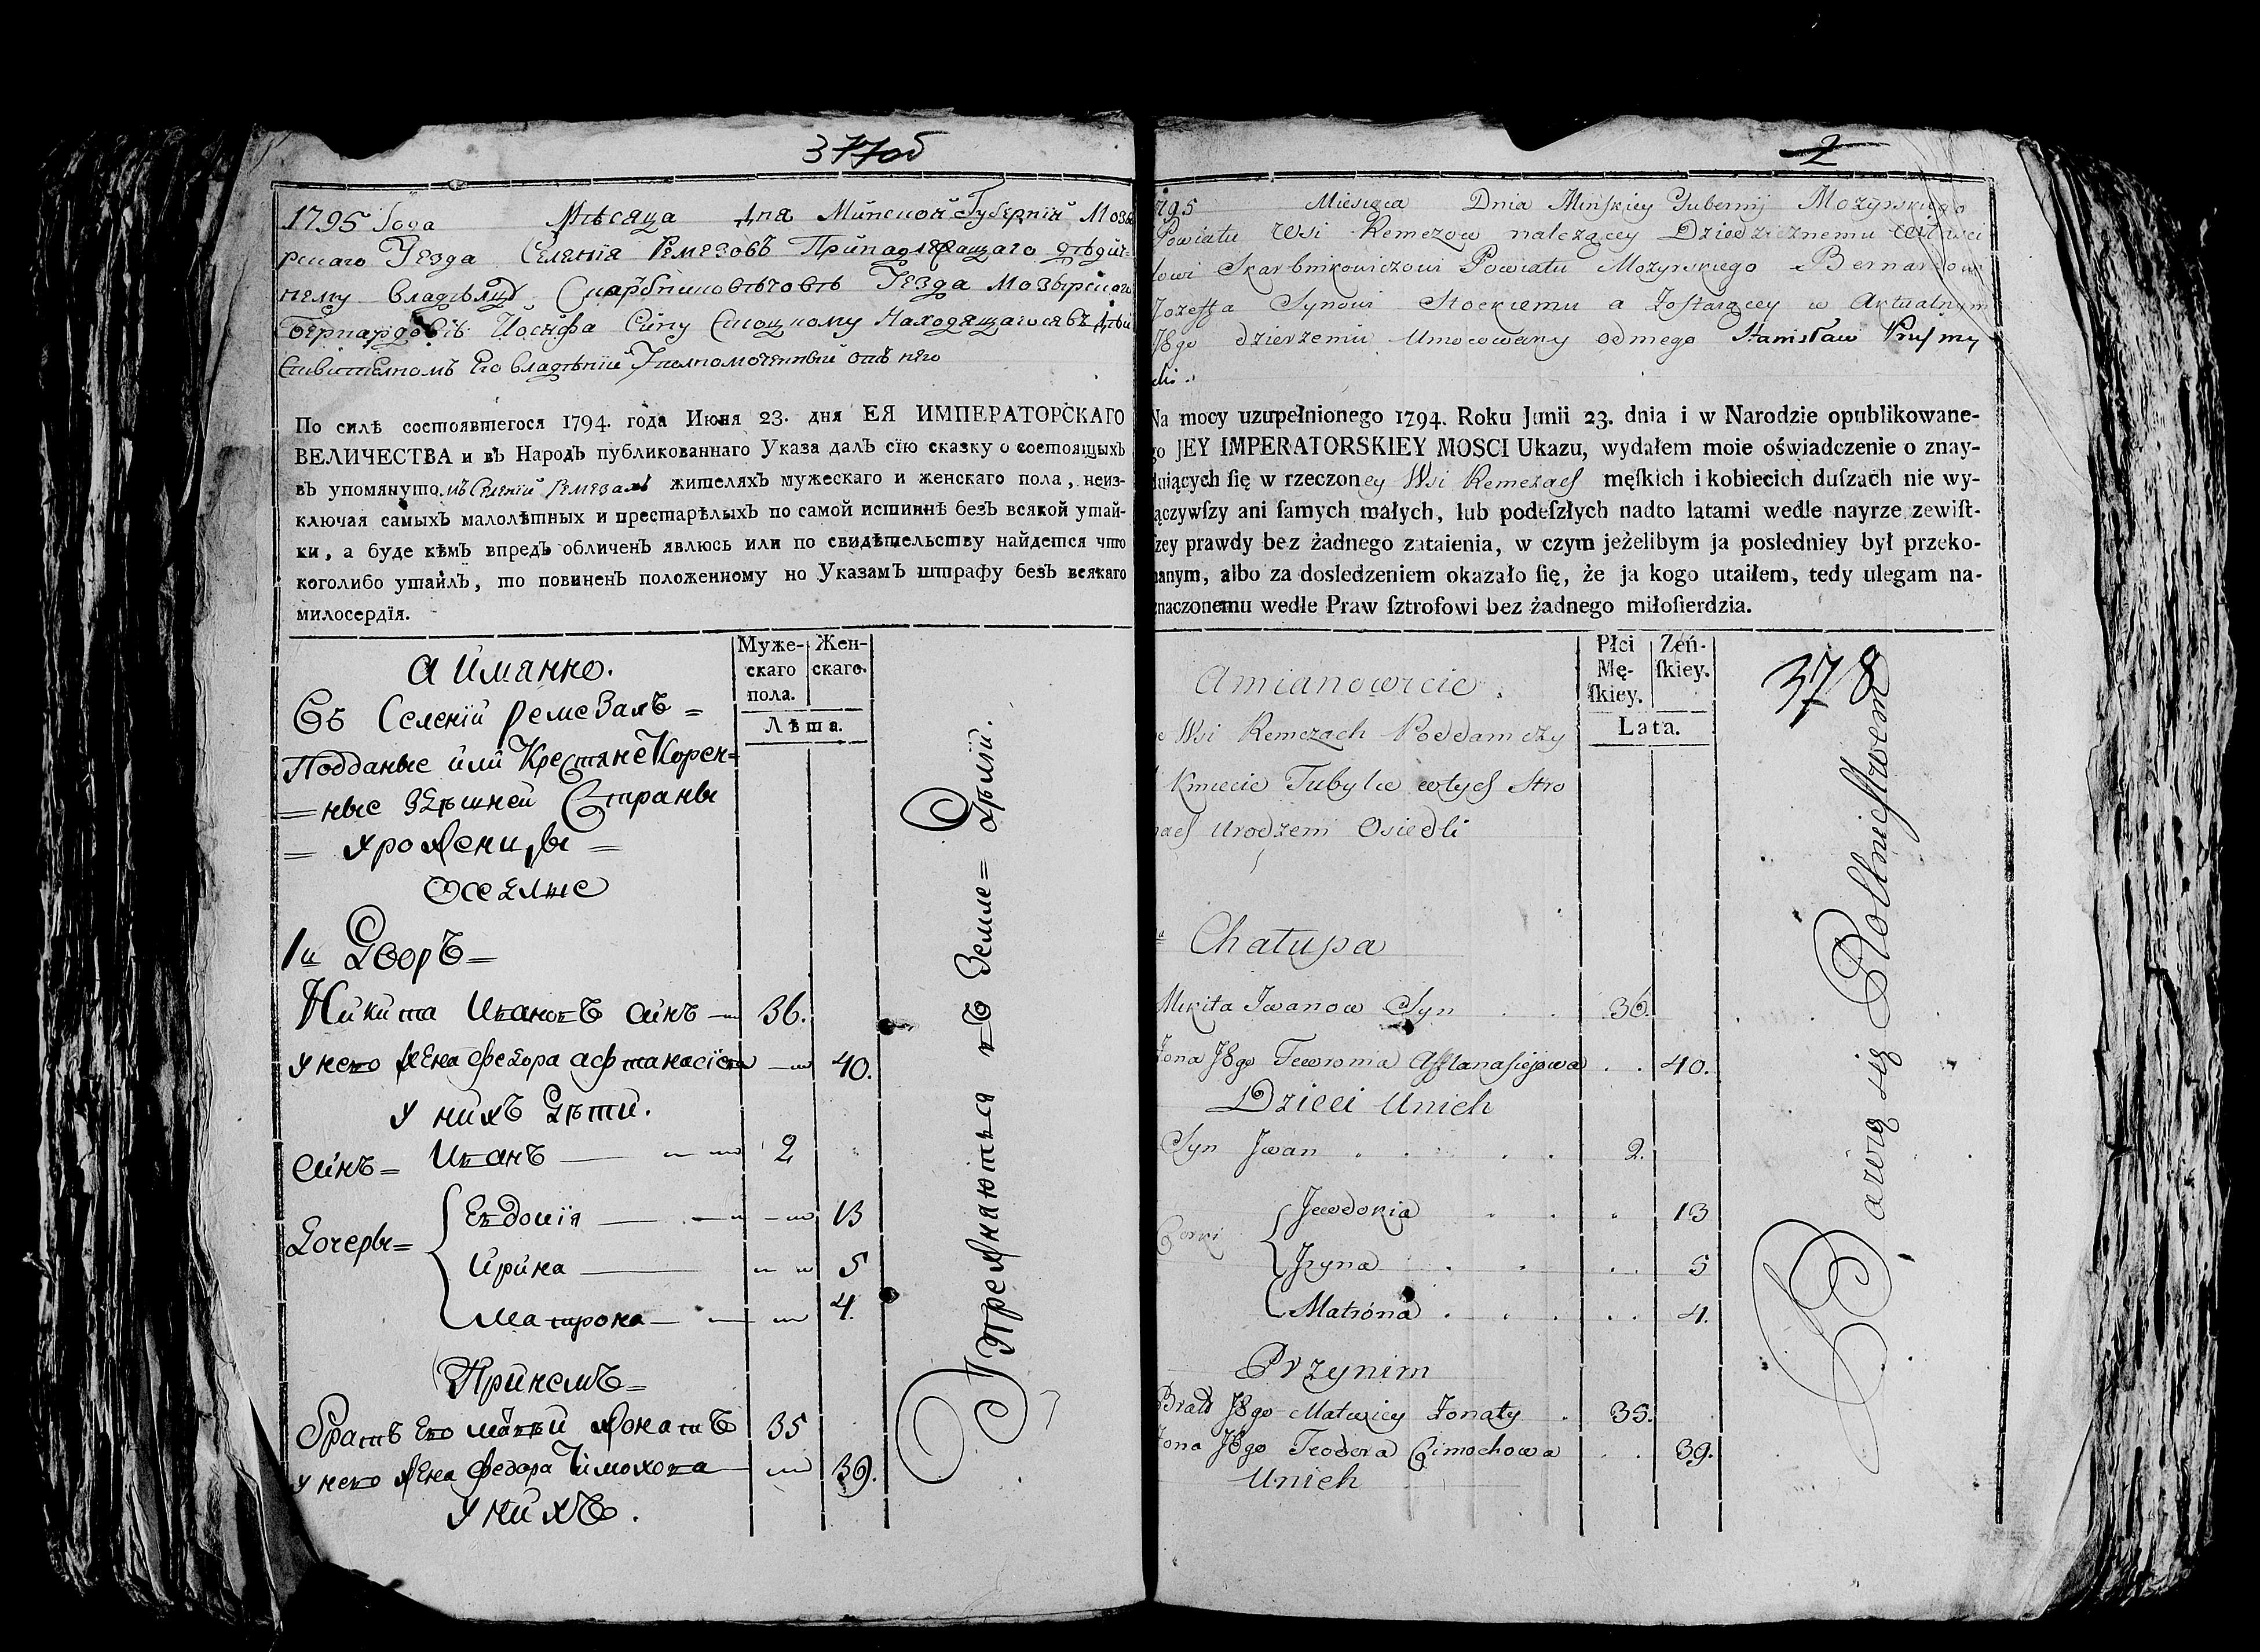 377об
1795 Года Мѣсяца Дня Минской Губернїи Мозы
рскаго Уезда Селенїя Ремезовъ Принадлежащаго дѣдич-
нему Владѣльцу Скарбниковѣчовѣ Уезда Мозырского
Бернардовѣ Иосифа Сыну Стоцкому Находящагося въ Дѣй
ствительномъ Его Владѣнїи Уполномоченный отъ него
По силѣ состоявшегося 1794. года Июня 23. дня ЕЯ ИМПЕРАТОРСКАГО
ВЕЛИЧЕСТВА и въ Народъ публикованнаго Указа далъ сїю сказку о состоящыхъ
въ упомянутомъ Селенїи Ремезахъ жителяхъ мужескаго и женскаго пола, неиз-
ключая самыхъ малолѣтных и престарѣлыхъ по самой истиннѣ безъ всякой утай-
ки, а буде кѣмъ впредь обличенъ явлюсь или по свидѣтельству найдется что
коголибо утаилъ, то повиненъ положенному по Указамъ штрафу безъ всякаго
милосердїя.
Муже-
скаго
пола.
Жен-
скаго.
Лѣта.
а Имянно.
Въ Селенїи Ремезахъ =
Подданые или Крестяне Корен=
= ные здѣшней Страны
= уроженицы =
Оседлые
1й Дворъ =
Никита Ивановъ сынъ 36.
У него жена Федора Афтанасїева 40.
У нихъ Дѣти.
Сынъ = Иванъ 2
Дочеры =
Евдокїя 13
Ирина 5
Матрона 4.
При немъ =
Братъ Его матвѣй женатъ 35
У него жена Федора Тимохова 39.
У нихъ.
Упражнаются въ Земле= дѣлїи.
2
1795 Miesiąca Dnia Minſkiey Gubernij Mozyrskiego
Powiatu Wsi Remezow należącey Dziedzicznemu Właści
lowi Skarbnikowiczowi Powiatu Mozyrskiego Bernardowi
Jozeffa Synowi Stockiemu a Zoſtaiącey w Aktualnym
JEgo dzierzeniu Umocowany odniego Stanisław
Na mocy uzupełnionego 1794. Roku Junii 23. dnia i w Narodzie opublikowane-
go JEY IMPERATORSKIEY MOSCI Ukazu, wydałem moie oświadczenie o znay-
duiących ſię w rzeczoney Wsi Remezach męſkich i kobiecich duſzach nie wy-
łączywſzy ani ſamych małych, lub podeſzłych nadto latami wedle nayrze zewiſt-
ſzey prawdy bez żadnego zataienia, w czym jeżelibym ja posledniey był przeko-
nanym, albo za dosledzeniem okazało ſię, że ja kogo utaiłem, tedy ulegam na-
znaczonemu wedle Praw ſztrofowi bez żadnego miłoſierdzia.
Płci
Mę-
ſkiey.
Zeń-
ſkiey.
Lata.
378
Amianowicie.
Wsi Remezach Poddani czy
Kmiecie Tubylce wtych Stro
nach Urodzeni Osiedli
Chałupa
Mikita Jwanow Syn 36.
Zona JEgo Fewronia Afftanaſiejowa 40.
Dzieci Unich
Syn Jwan 2.
Corki
Jewdokia 13
Jryna 5
Matrona 4.
Przynim
Bratt JEgo Matwiey Zonaty 35.
Zona JEgo Teodora Cimochowa 39.
Unich
Bawią się Rolnictwem